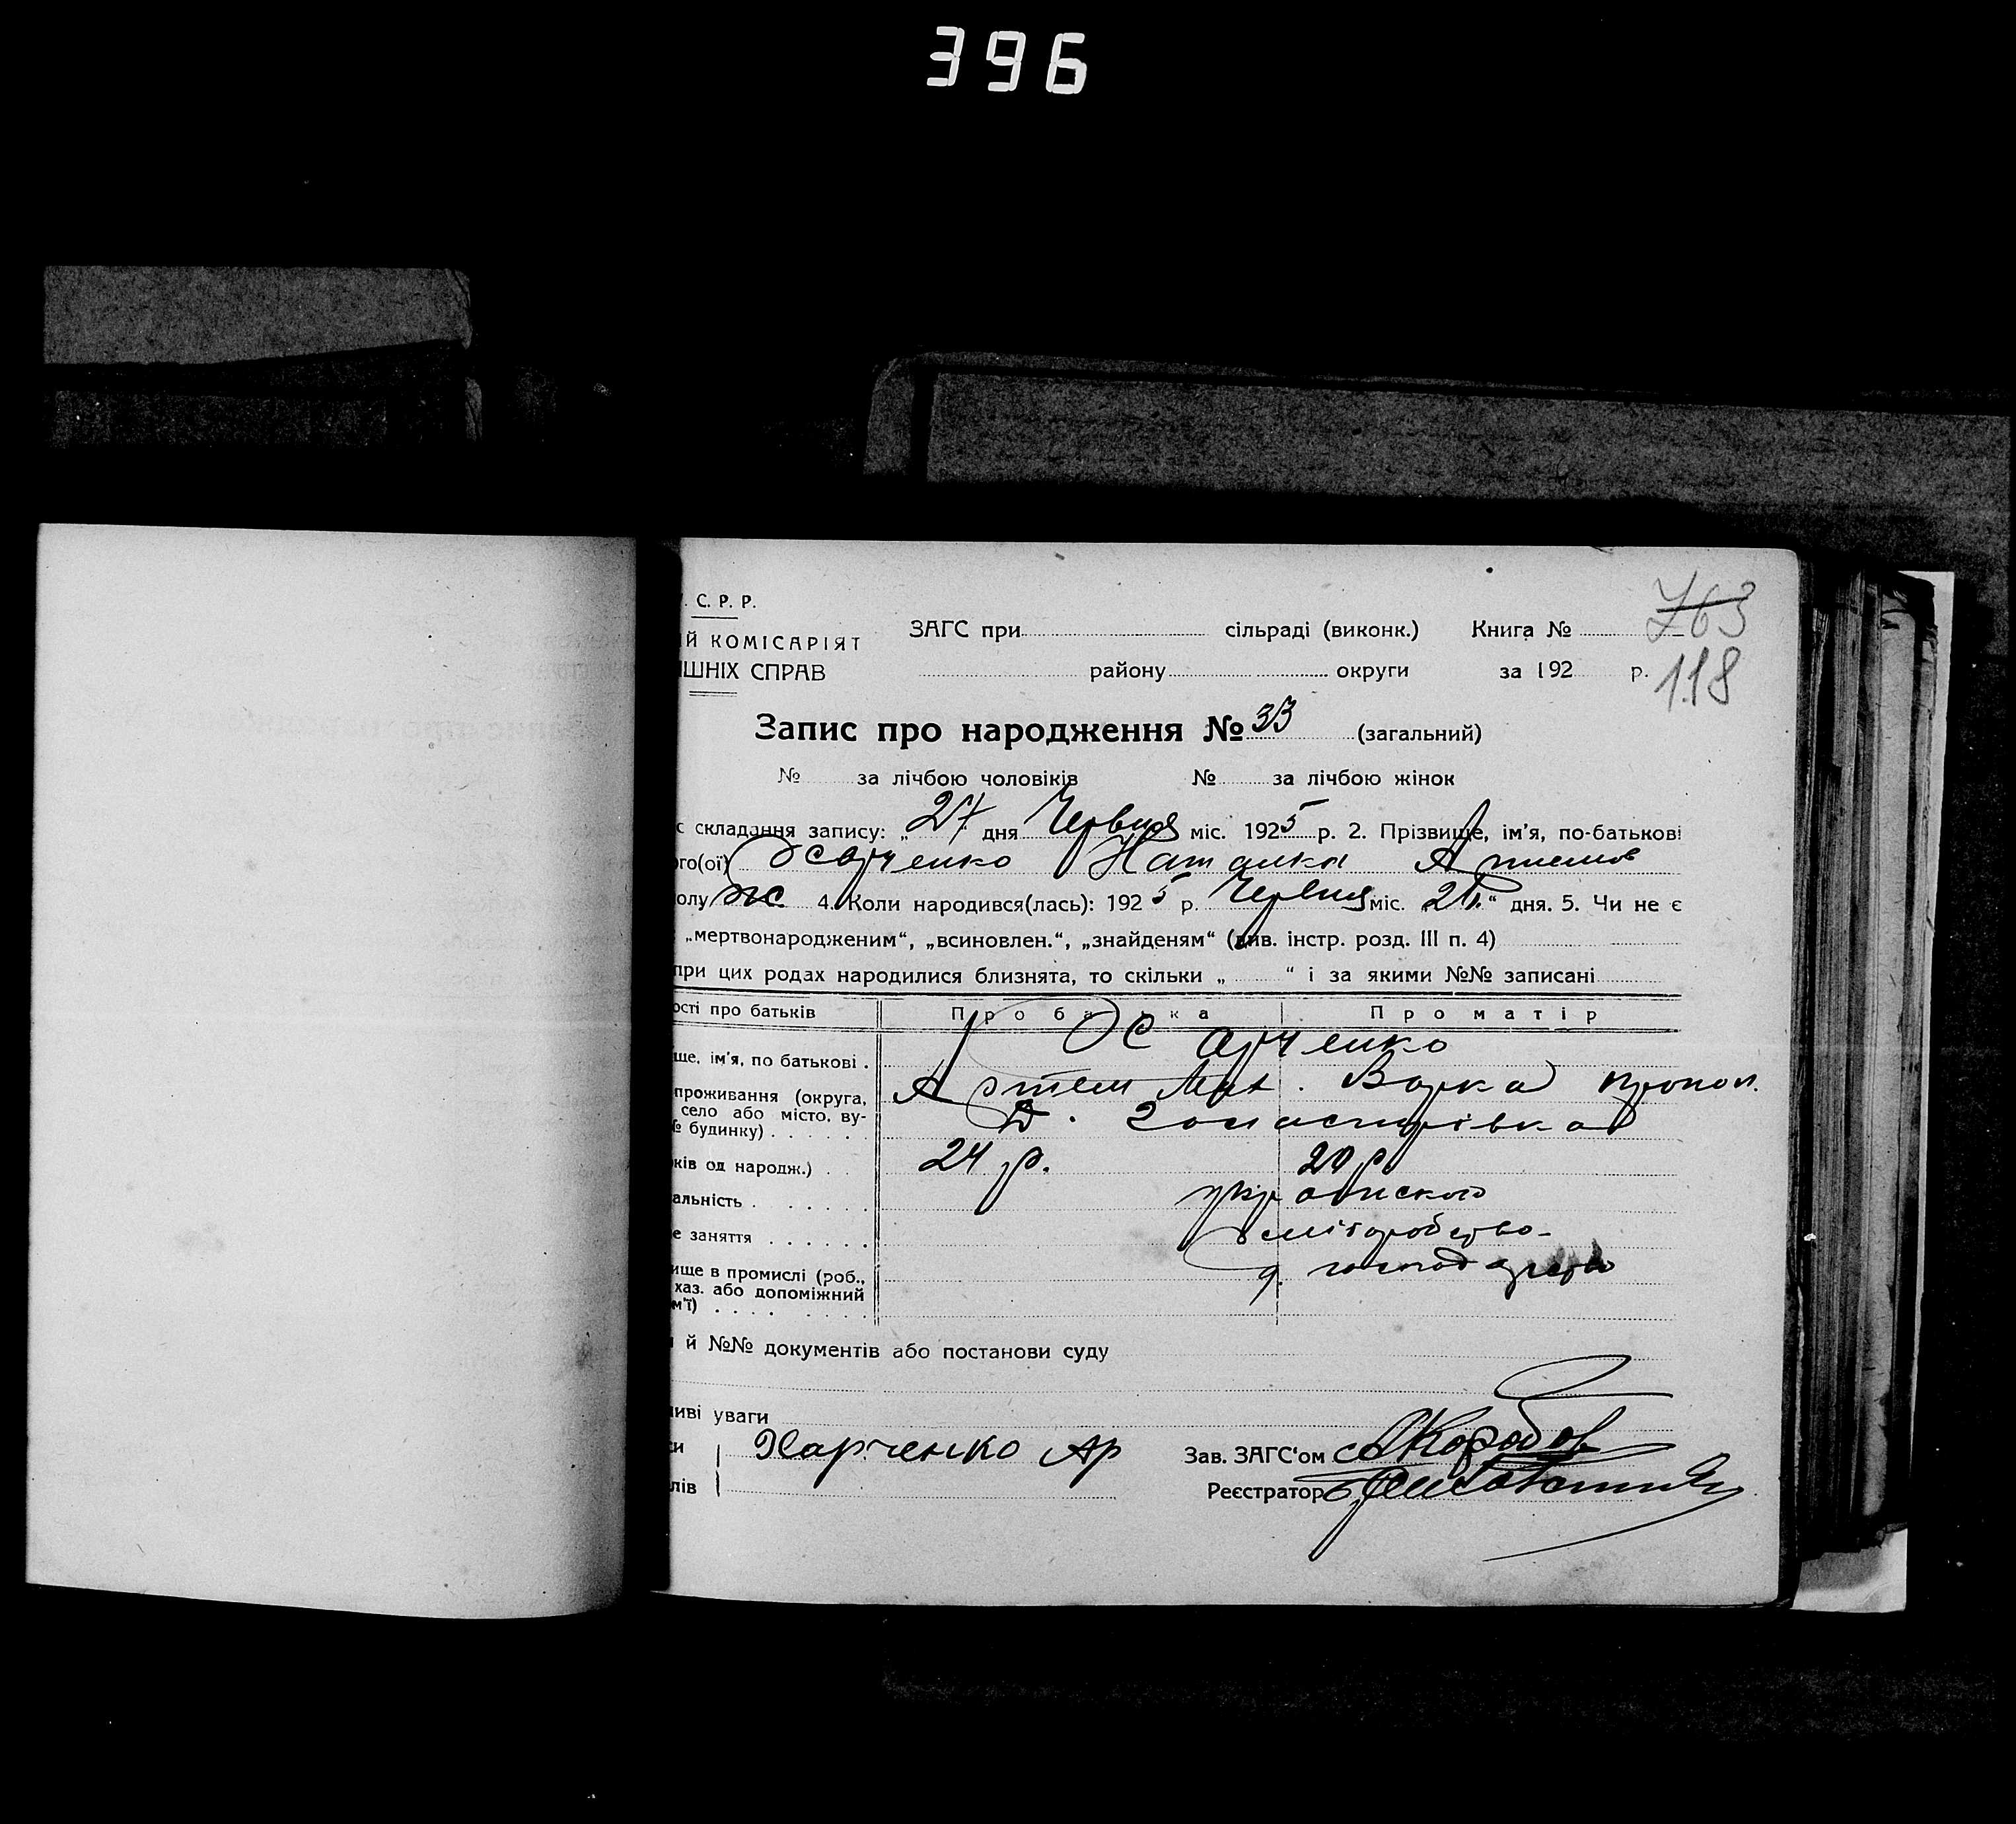 396
763
118
. С. Р. Р.
ИЙ КОМІСАРІЯТ
ІШНІХ СПРАВ
ЗАГС при сільраді (виконк.) Книга №
району округи за 192 р.
Запис про народження № 33 (загальний)
№ за лічбою чоловіків № за лічбою жінок
с складання запису: „27 дня Червня міс. 1925 р. 2. Прізвище, ім'я, по-батькові
го(ої) Харченко Наталка
олу ж 4. Коли народився(лась): 1925 р. Червня міс. „ “ дня. 5. Чи не є
„мертвонародженим“, „всиновлен.“, „знайденям“ (див. інстр. розд. III п. 4)
при цих родах народилися близнята, то скільки „ “ і за якими №№ записані
ості про батьків Про батька Про матір
ще, ім'я, по батькові . Харченко
Артем Варка
проживання (округа,
село або місто, ву-
№ будинку)
ків од народж.) 24 р. 20 р.
альність українского
е заняття
ище в промислі (роб.,
хаз. або допоміжний
м'ї)
й №№ документів або постанови суду
иві уваги
си Харченко Ар Зав. ЗАГС'ом
лів Реєстратор